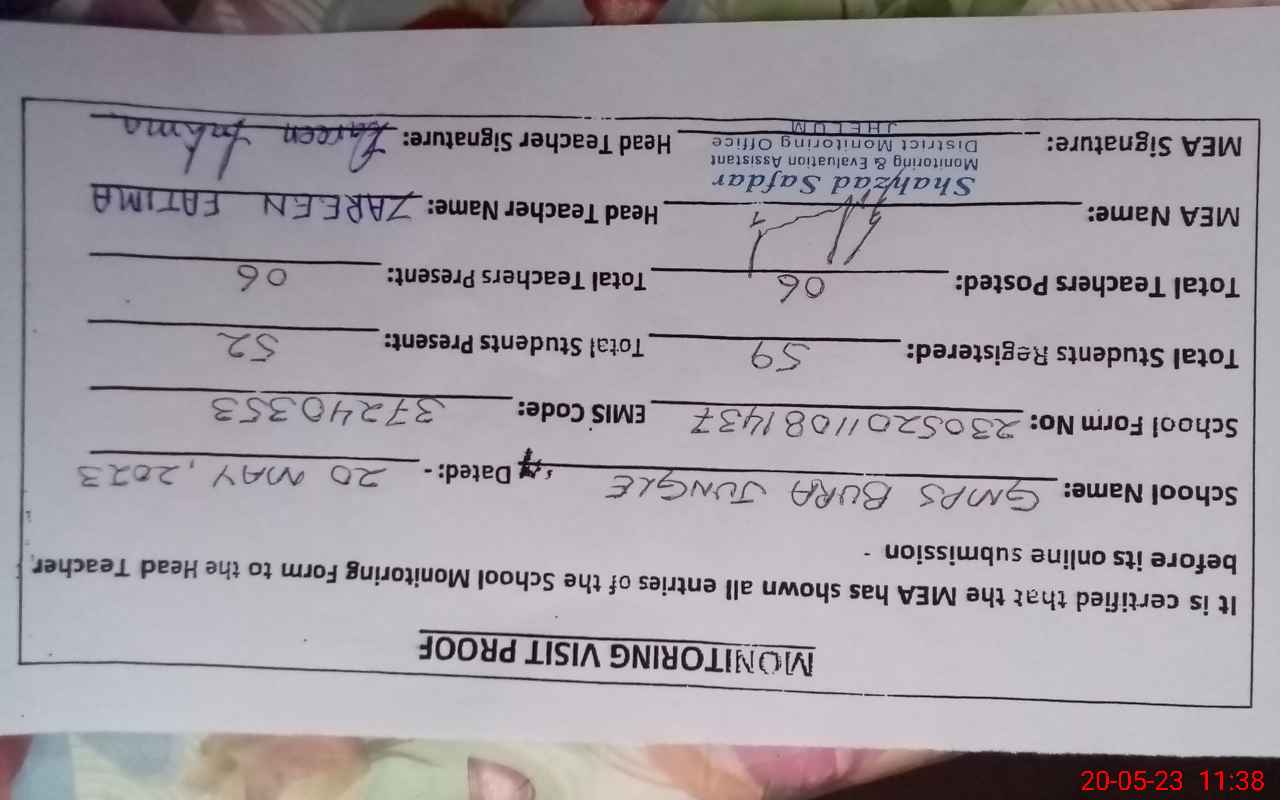 MONITORING VISIT PROOF
It is certified that the MEA has shown all entries of the School Monitoring Form to the Head Teacher,
before its online submission -
School Name: GMPS BURA JUNGLE Dated: - 20 MAY, 2023
School Form No: 230520110814 37 EMIS Code: 37240353
Total Students Registered: 59 Total Students Present: 52
Total Teachers Posted: 06 Total Teachers Present: 06
MEA Name: Head Teacher Name: ZAREEN FATIMA
Shahzad Safdar
Monitoring & Evaluation Assistant
District Monitoring Office
JHELUM
MEA Signature: Head Teacher Signature: Zareen Fatima
20-05-23 11:38